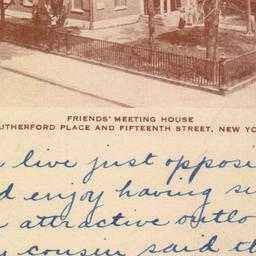 FRIENDS' MEETING HOUSE
UTHERFORD PLACE AND FIFTEENTH STREET, NEW YO
live just opposi
d enjoy having su
attractive outlo
y cousin said th